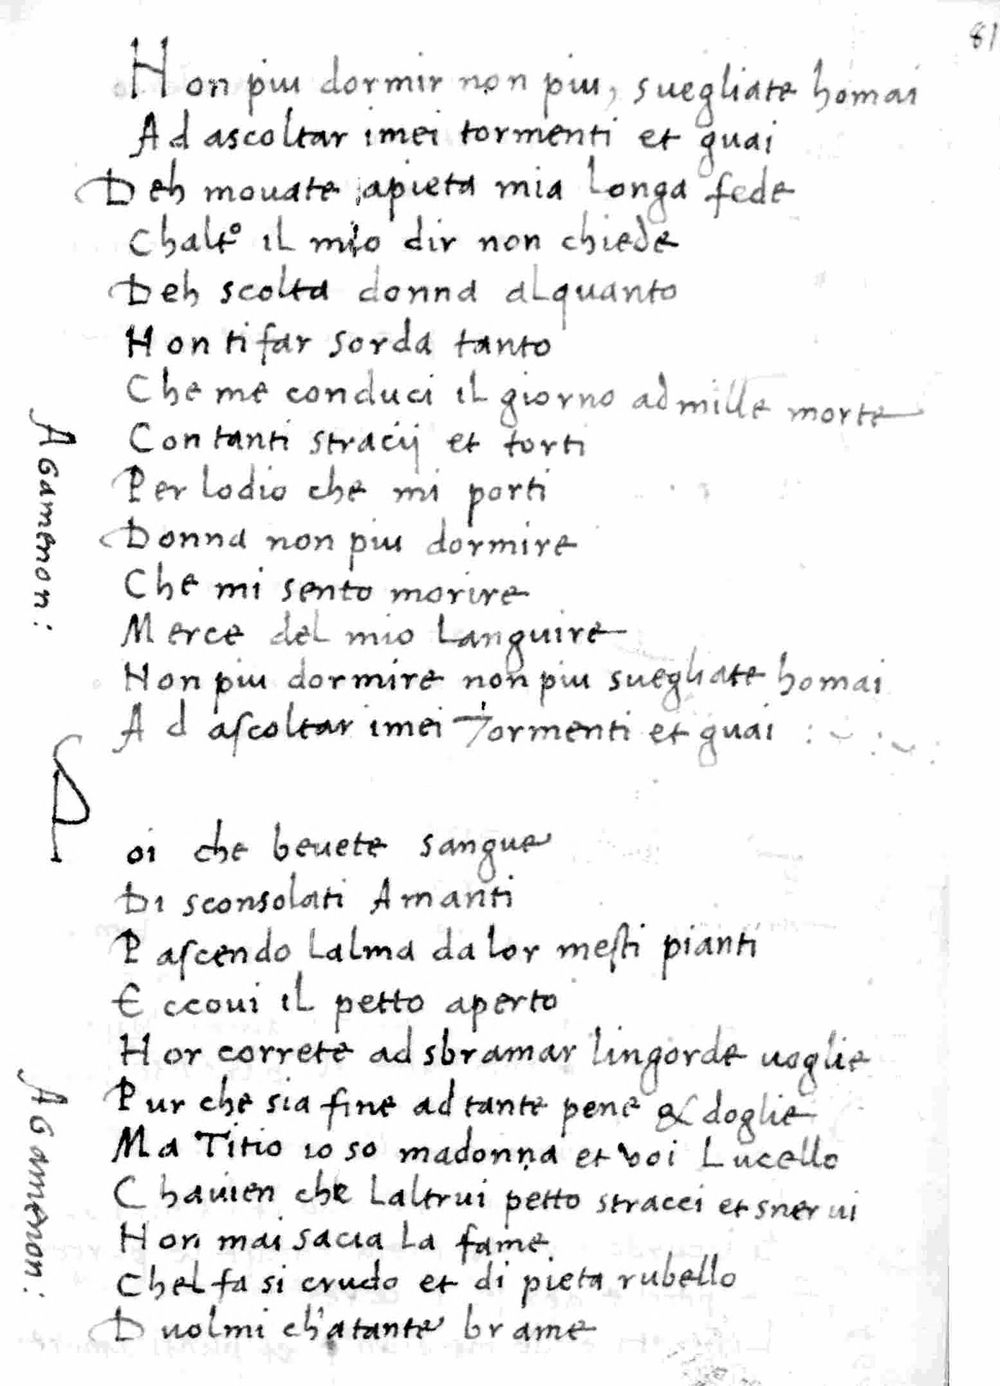 81
Non piu dormir non piu, suegliate homai
Ad ascoltar imei tormenti et guai
Deh mouate apieta mia longa fede
Chalt° il mio dir non chiede
Deh scolta donna alquanto
Non ti far sorda tanto
Che me conduci il giorno ad mille morte
Con tanti stracij et torti
Per lodio che mi porti
Donna non piu dormire
Che mi sento morire
Merce del mio languire
Non piu dormire non piu suegliate homai
Ad aſcoltar imei tormenti et guai
Agamenon:
Poi che beuete sangue
Di sconsolati Amanti
Paſcendo lalma da lor meſti pianti
Eccoui il petto aperto
Hor correte ad sbramar lingorde uoglie
Pur che sia fine ad tante pene & doglie
Ma Titio io so madonna et voi Lucello
Chauien che laltrui petto stracci et snerui
Non mai sacia la fame
Chel fa si crudo et di pieta rubello
Duolmi ch'atante brame
Agamenon: